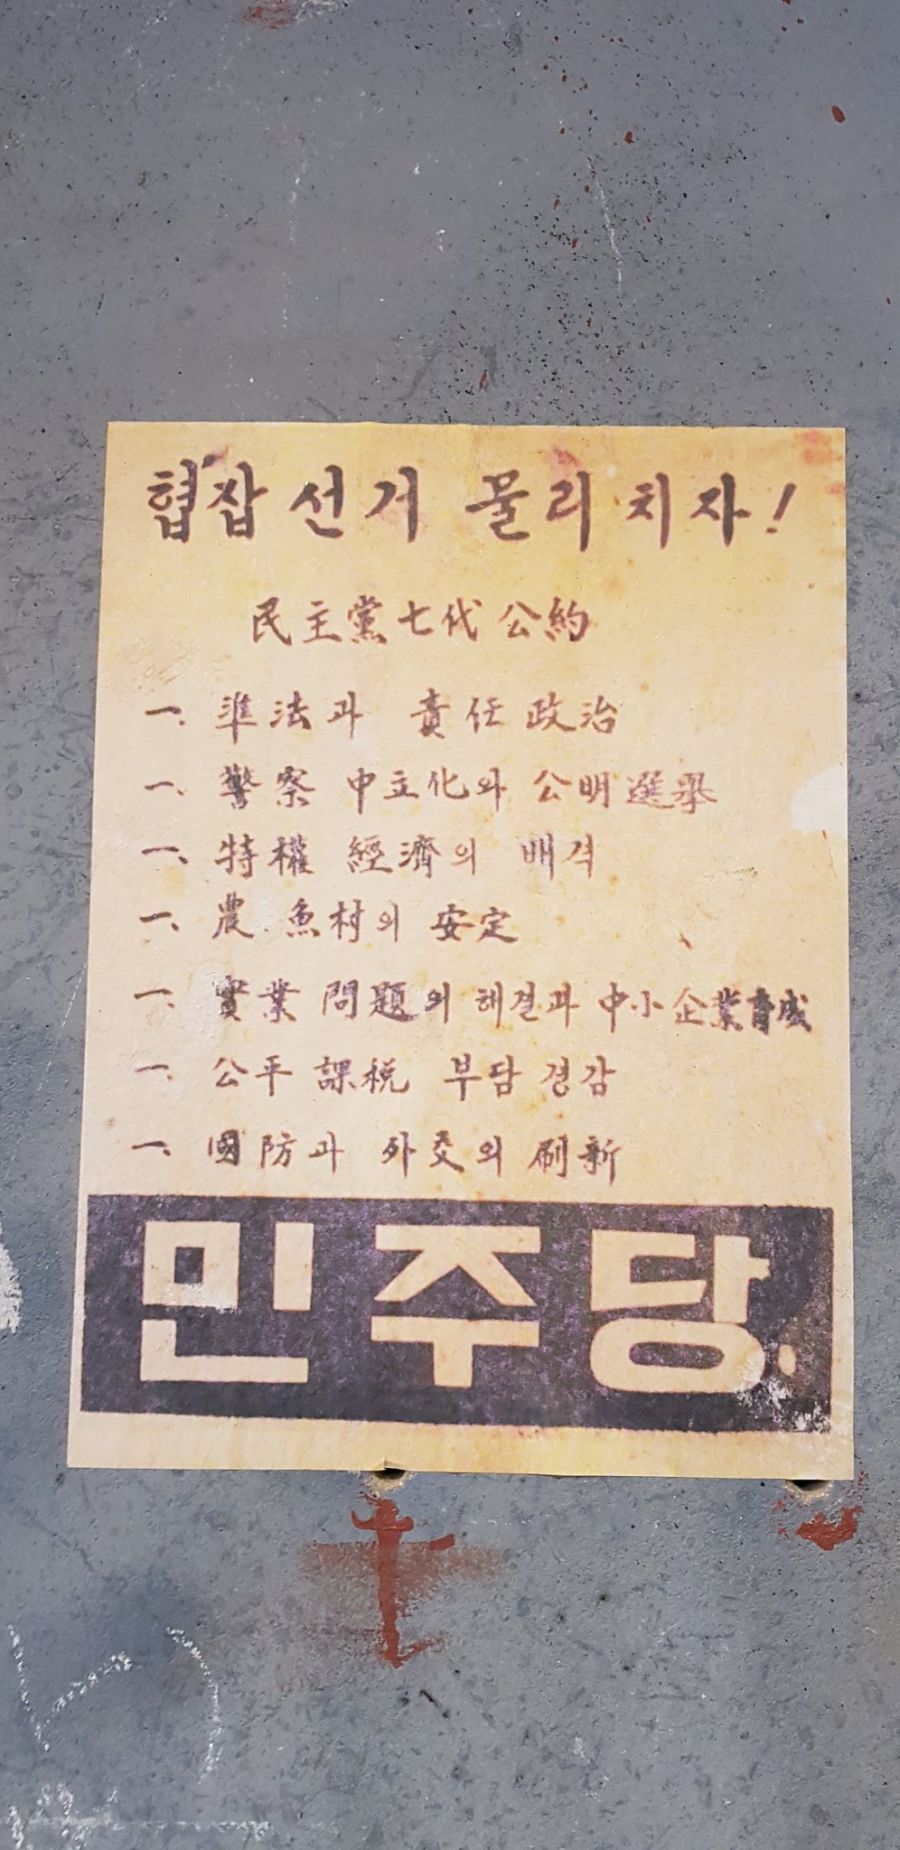 협잡 선거 물리치자!
民主黨七代公約
一. 準法과 責任政治
一. 警察 中立化와 公明選擧
一. 特權 經濟의 배격
一. 農.魚村의 安定
一. 實業 問題의 해결과 中小企業育成
一. 公平 課稅 부담경감
一. 國防과 外交의 刷新
민주당.